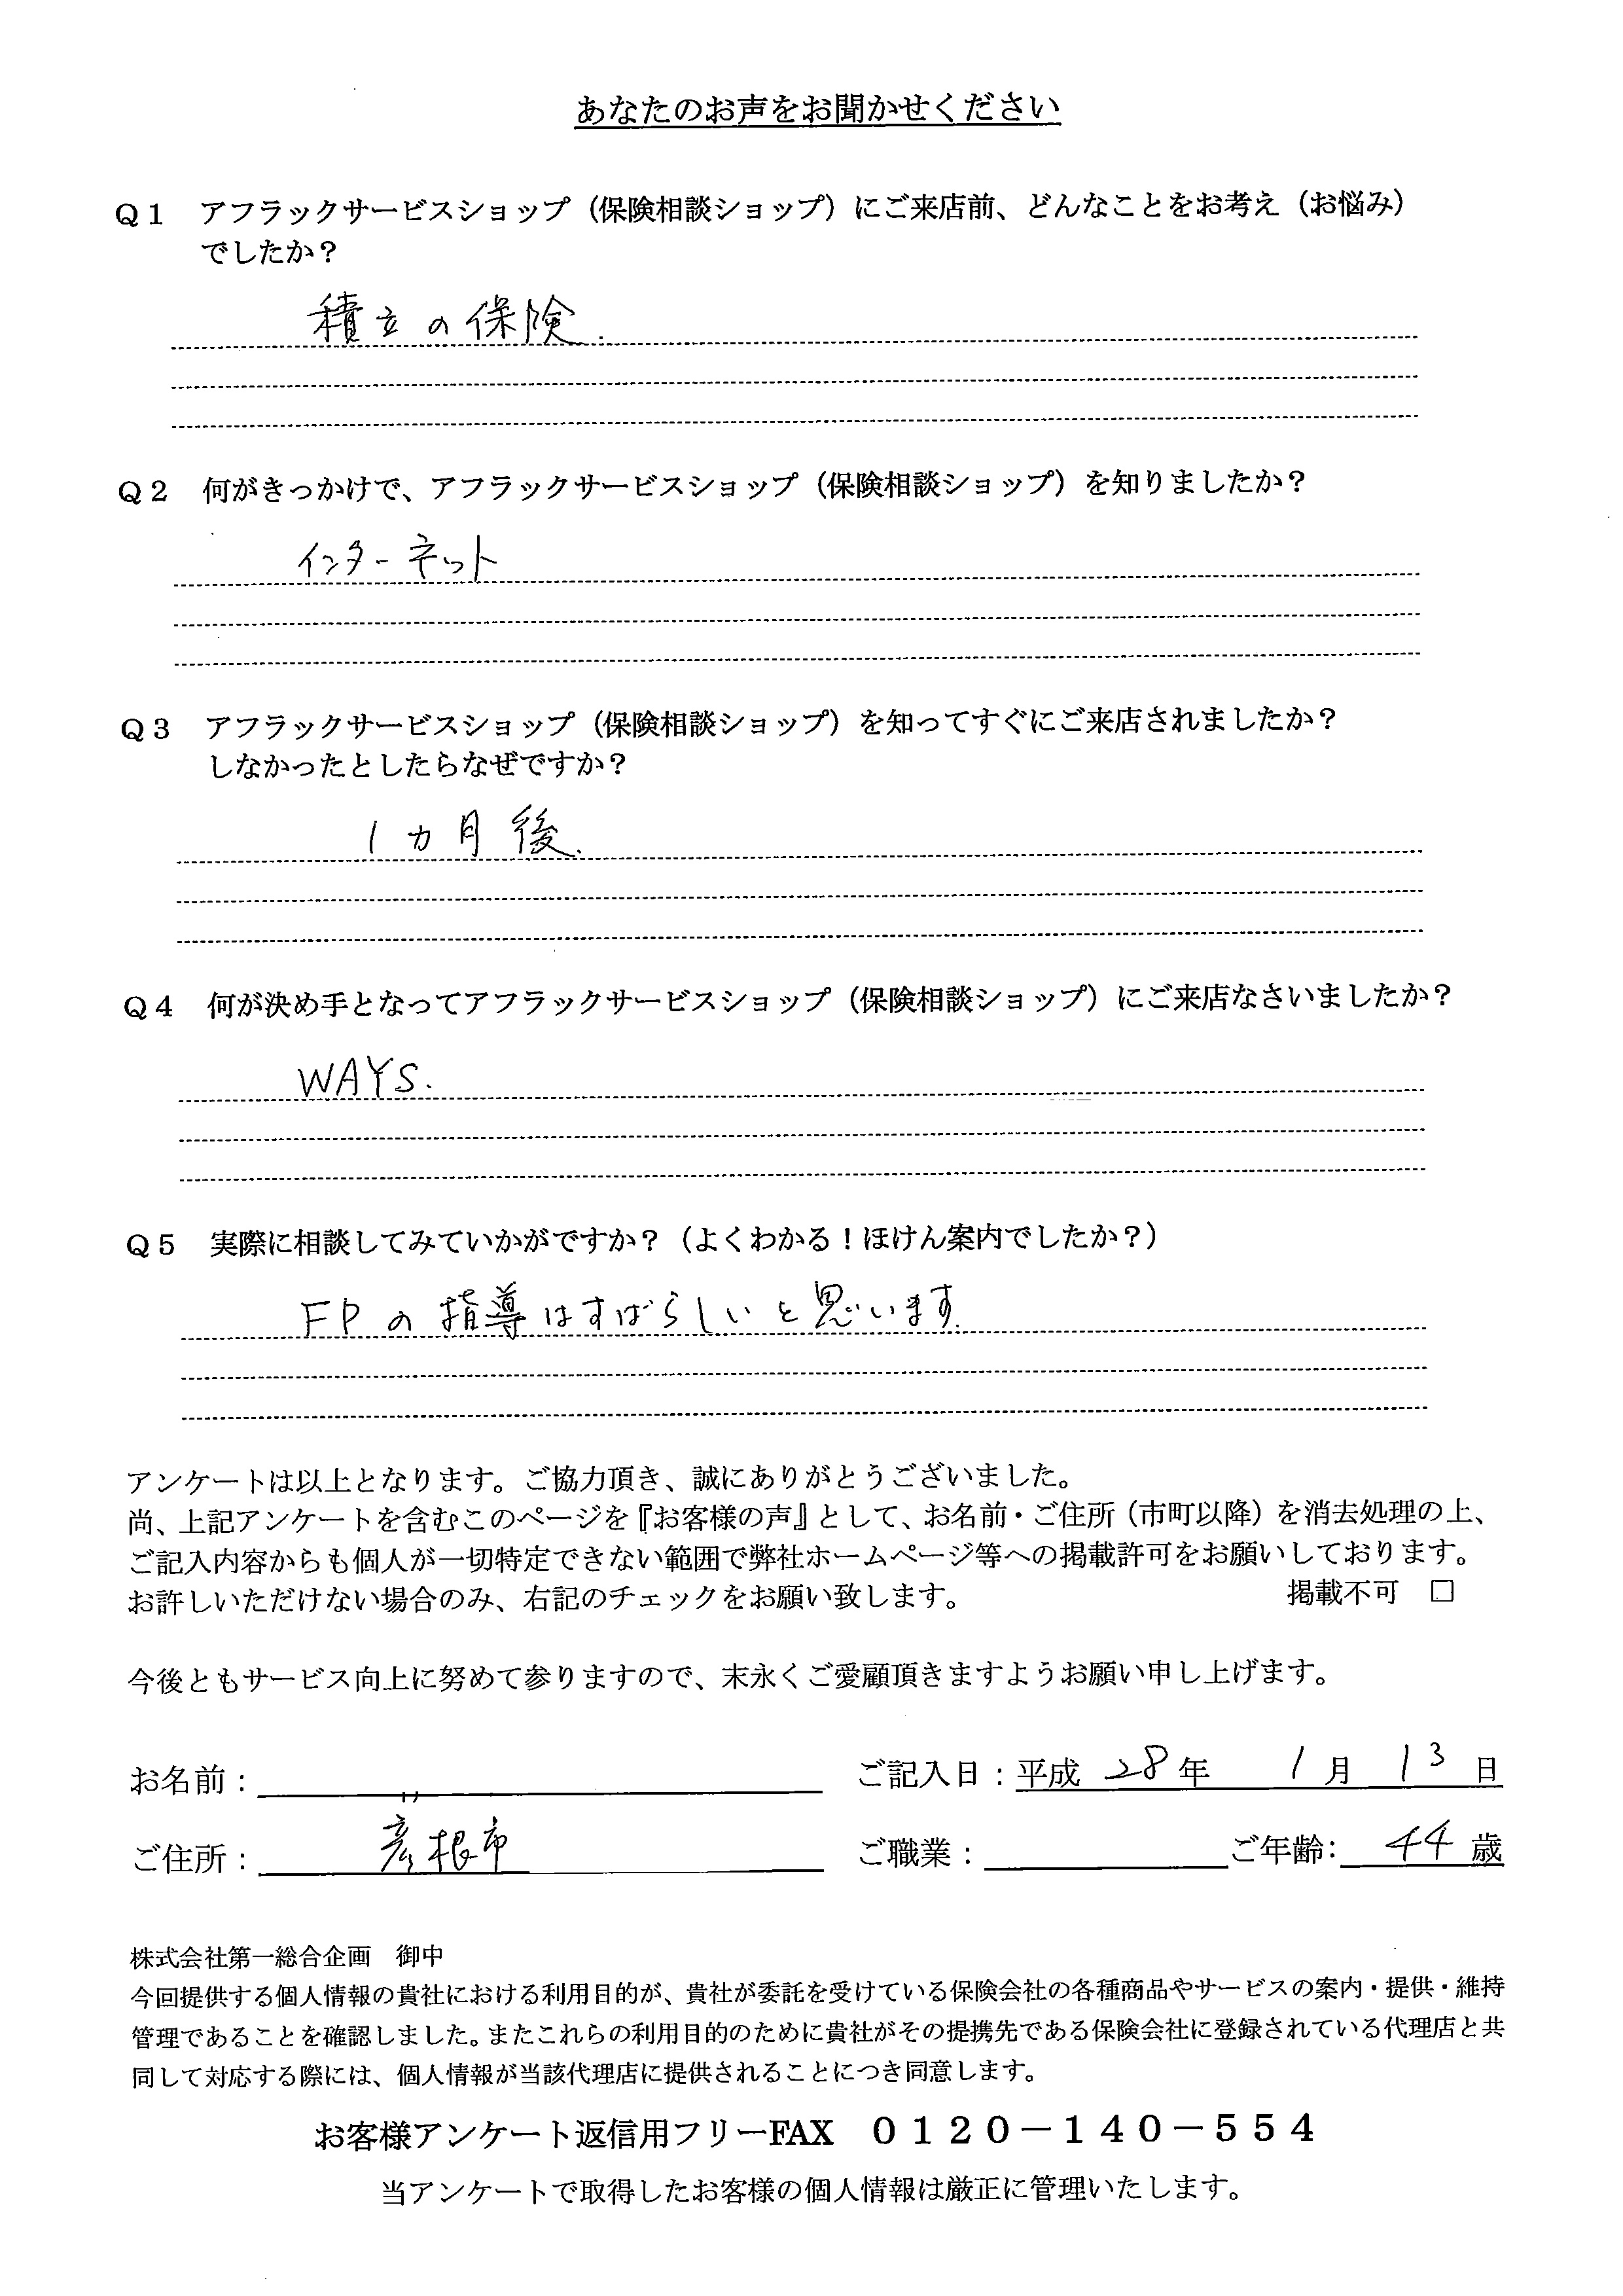 あなたのお声をお聞かせください
Ｑ１　アフラックサービスショップ（保険相談ショップ）にご来店前、どんなことをお考え（お悩み）
でしたか？
積立の保険.
Ｑ２　何がきっかけで、アフラックサービスショップ（保険相談ショップ）を知りましたか？
インターネット
Ｑ３　アフラックサービスショップ（保険相談ショップ）を知ってすぐにご来店されましたか？
しなかったとしたらなぜですか？
1ヵ月後.
Ｑ４　何が決め手となってアフラックサービスショップ（保険相談ショップ）にご来店なさいましたか？
WAYS.
Ｑ５　実際に相談してみていかがですか？（よくわかる！ほけん案内でしたか？）
FPの指導はすばらしいと思います.
アンケートは以上となります。ご協力頂き、誠にありがとうございました。
尚、上記アンケートを含むこのページを『お客様の声』として、お名前・ご住所（市町以降）を消去処理の上、
ご記入内容からも個人が一切特定できない範囲で弊社ホームページ等への掲載許可をお願いしております。
お許しいただけない場合のみ、右記のチェックをお願い致します。　掲載不可　□
今後ともサービス向上に努めて参りますので、末永くご愛顧頂きますようお願い申し上げます。
お名前：　ご記入日：平成 28 年 1 月 13 日
ご住所：彦根市　ご職業：　ご年齢：44 歳
株式会社第一総合企画　御中
今回提供する個人情報の貴社における利用目的が、貴社が委託を受けている保険会社の各種商品やサービスの案内・提供・維持
管理であることを確認しました。またこれらの利用目的のために貴社がその提携先である保険会社に登録されている代理店と共
同して対応する際には、個人情報が当該代理店に提供されることにつき同意します。
お客様アンケート返信用フリーFAX　０１２０－１４０－５５４
当アンケートで取得したお客様の個人情報は厳正に管理いたします。